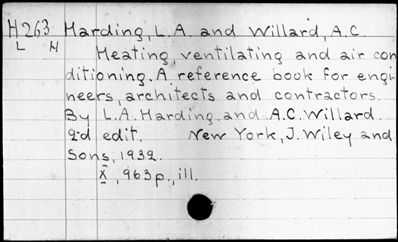 H263 Harding, L.A. and Willard, A.C.
L H
Heating, ventilating and air con
ditioning. A reference book for engi-
neers, architects and contractors.
By L.A. Harding and A.C. Willard
2d edit. New York, J. Wiley and
Sons, 1932.
X, 963p., ill.